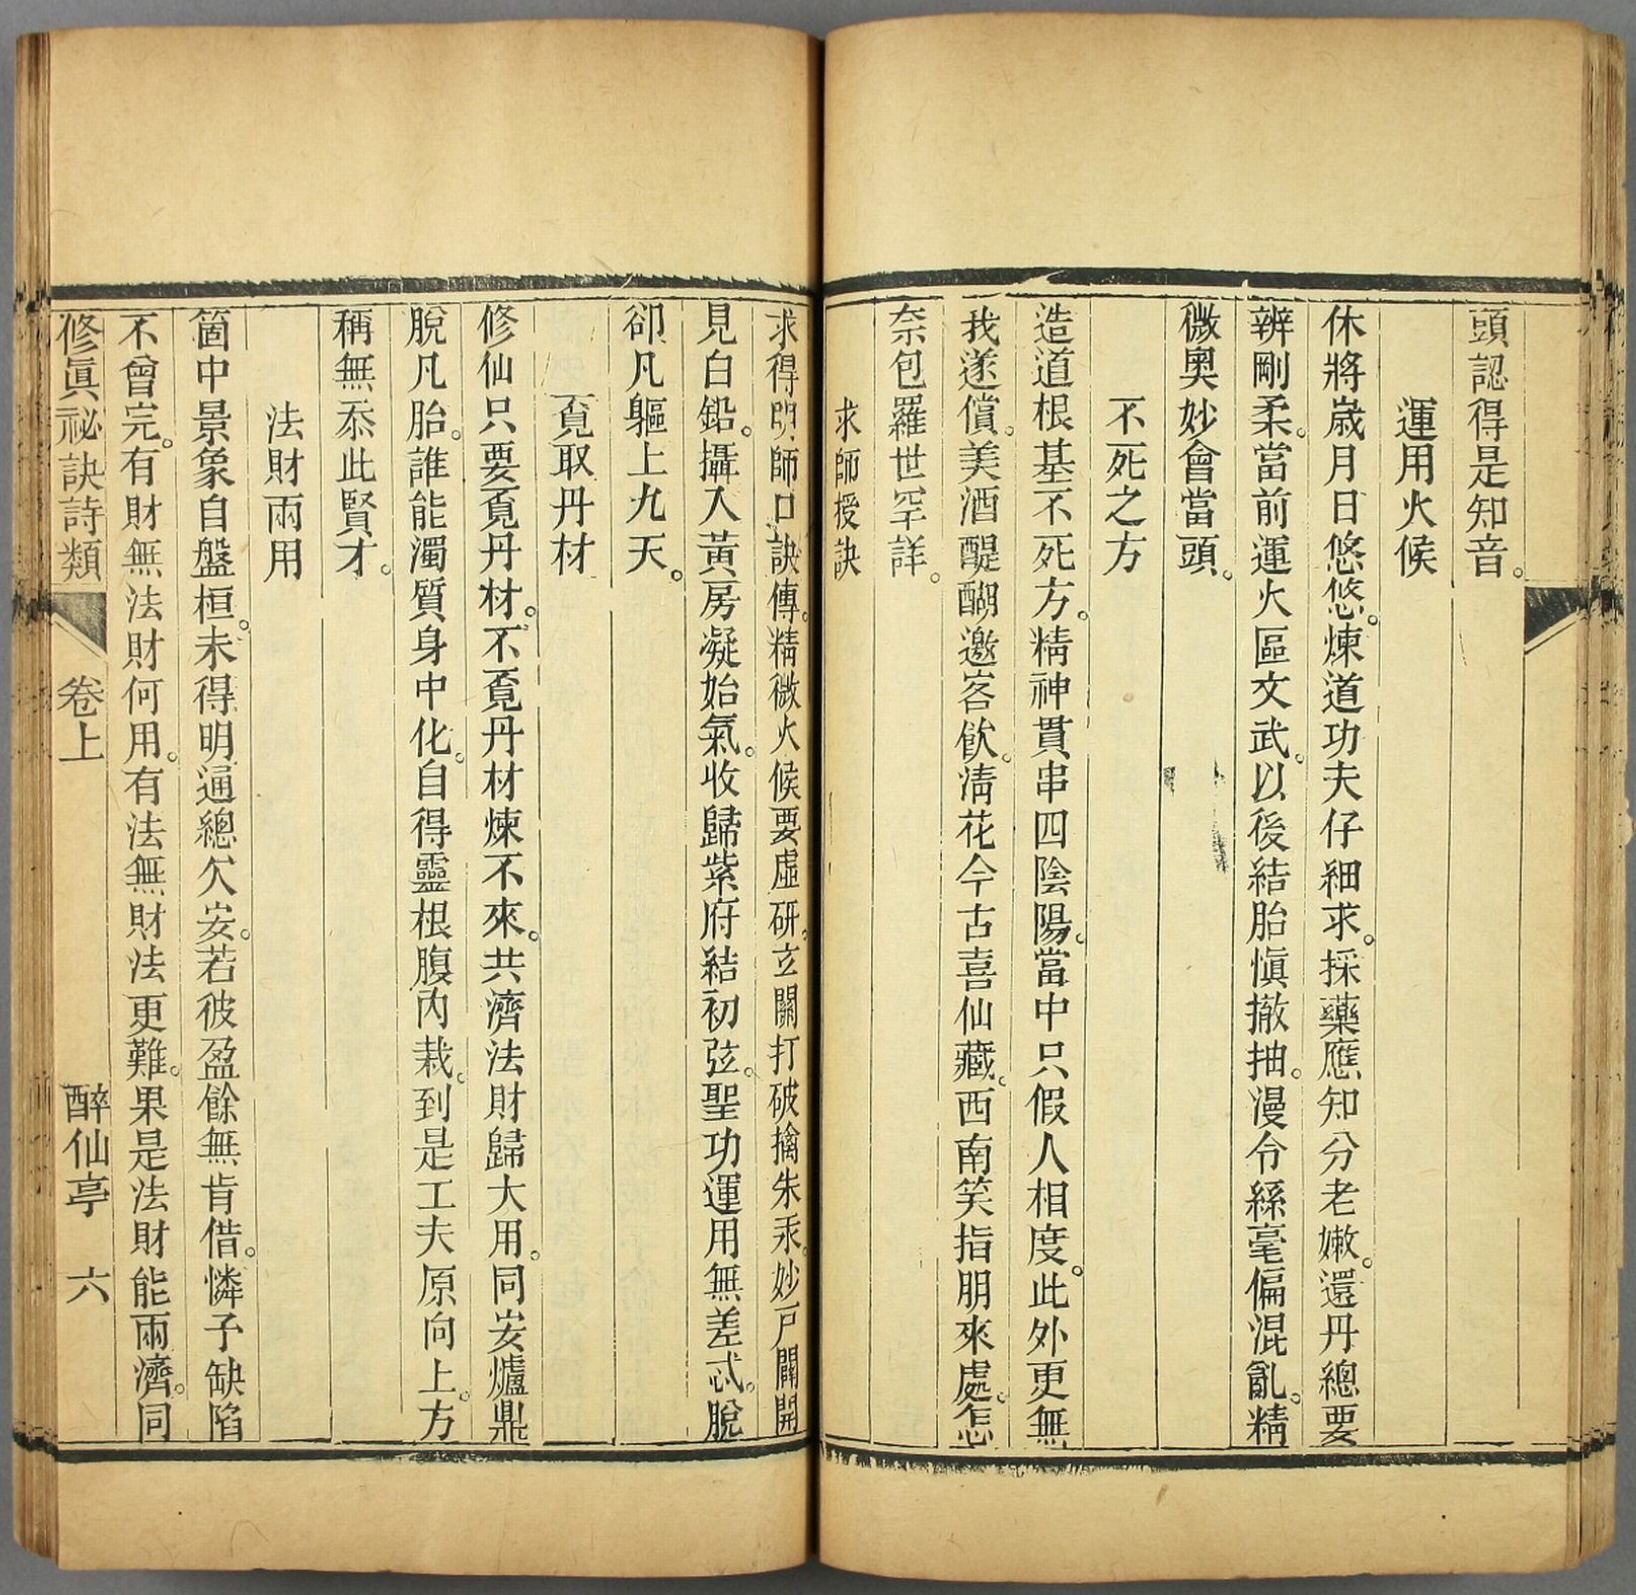 頭認得是知音。
運用火候
休將歲月日悠悠。煉道功夫仔細求。採藥應知分老嫩。還丹總要
辨剛柔。當前運火區文武。以後結胎愼撤抽。漫令絲毫偏混亂。精
微奧妙會當頭。
不死之方
造道根基不死方。精神貫串四陰陽。當中只假人相度。此外更無
我遂償。美酒醍醐邀客飲。淸花今古喜仙藏。西南笑指朋來處。怎
奈包羅世罕詳。
求師授訣
求得明師口訣傳。精微火候要虛研。玄關打破擒朱汞。妙戶闢開
見白鉛。攝入黃房凝始氣。收歸紫府結初弦。聖功運用無差忒。脫
卻凡軀上九天。
覔取丹材
修仙只要覔丹材。不覔丹材煉不來。共濟法財歸大用。同安爐鼎
脫凡胎。誰能濁質身中化。自得靈根腹內栽。到是工夫原向上。方
稱無忝此賢才。
法財兩用
箇中景象自盤桓。未得明通總欠安。若彼盈餘無肯借。憐予缺陷
不曾完。有財無法財何用。有法無財法更難。果是法財能兩濟。同
修眞祕訣詩類 卷上 醉仙亭 六